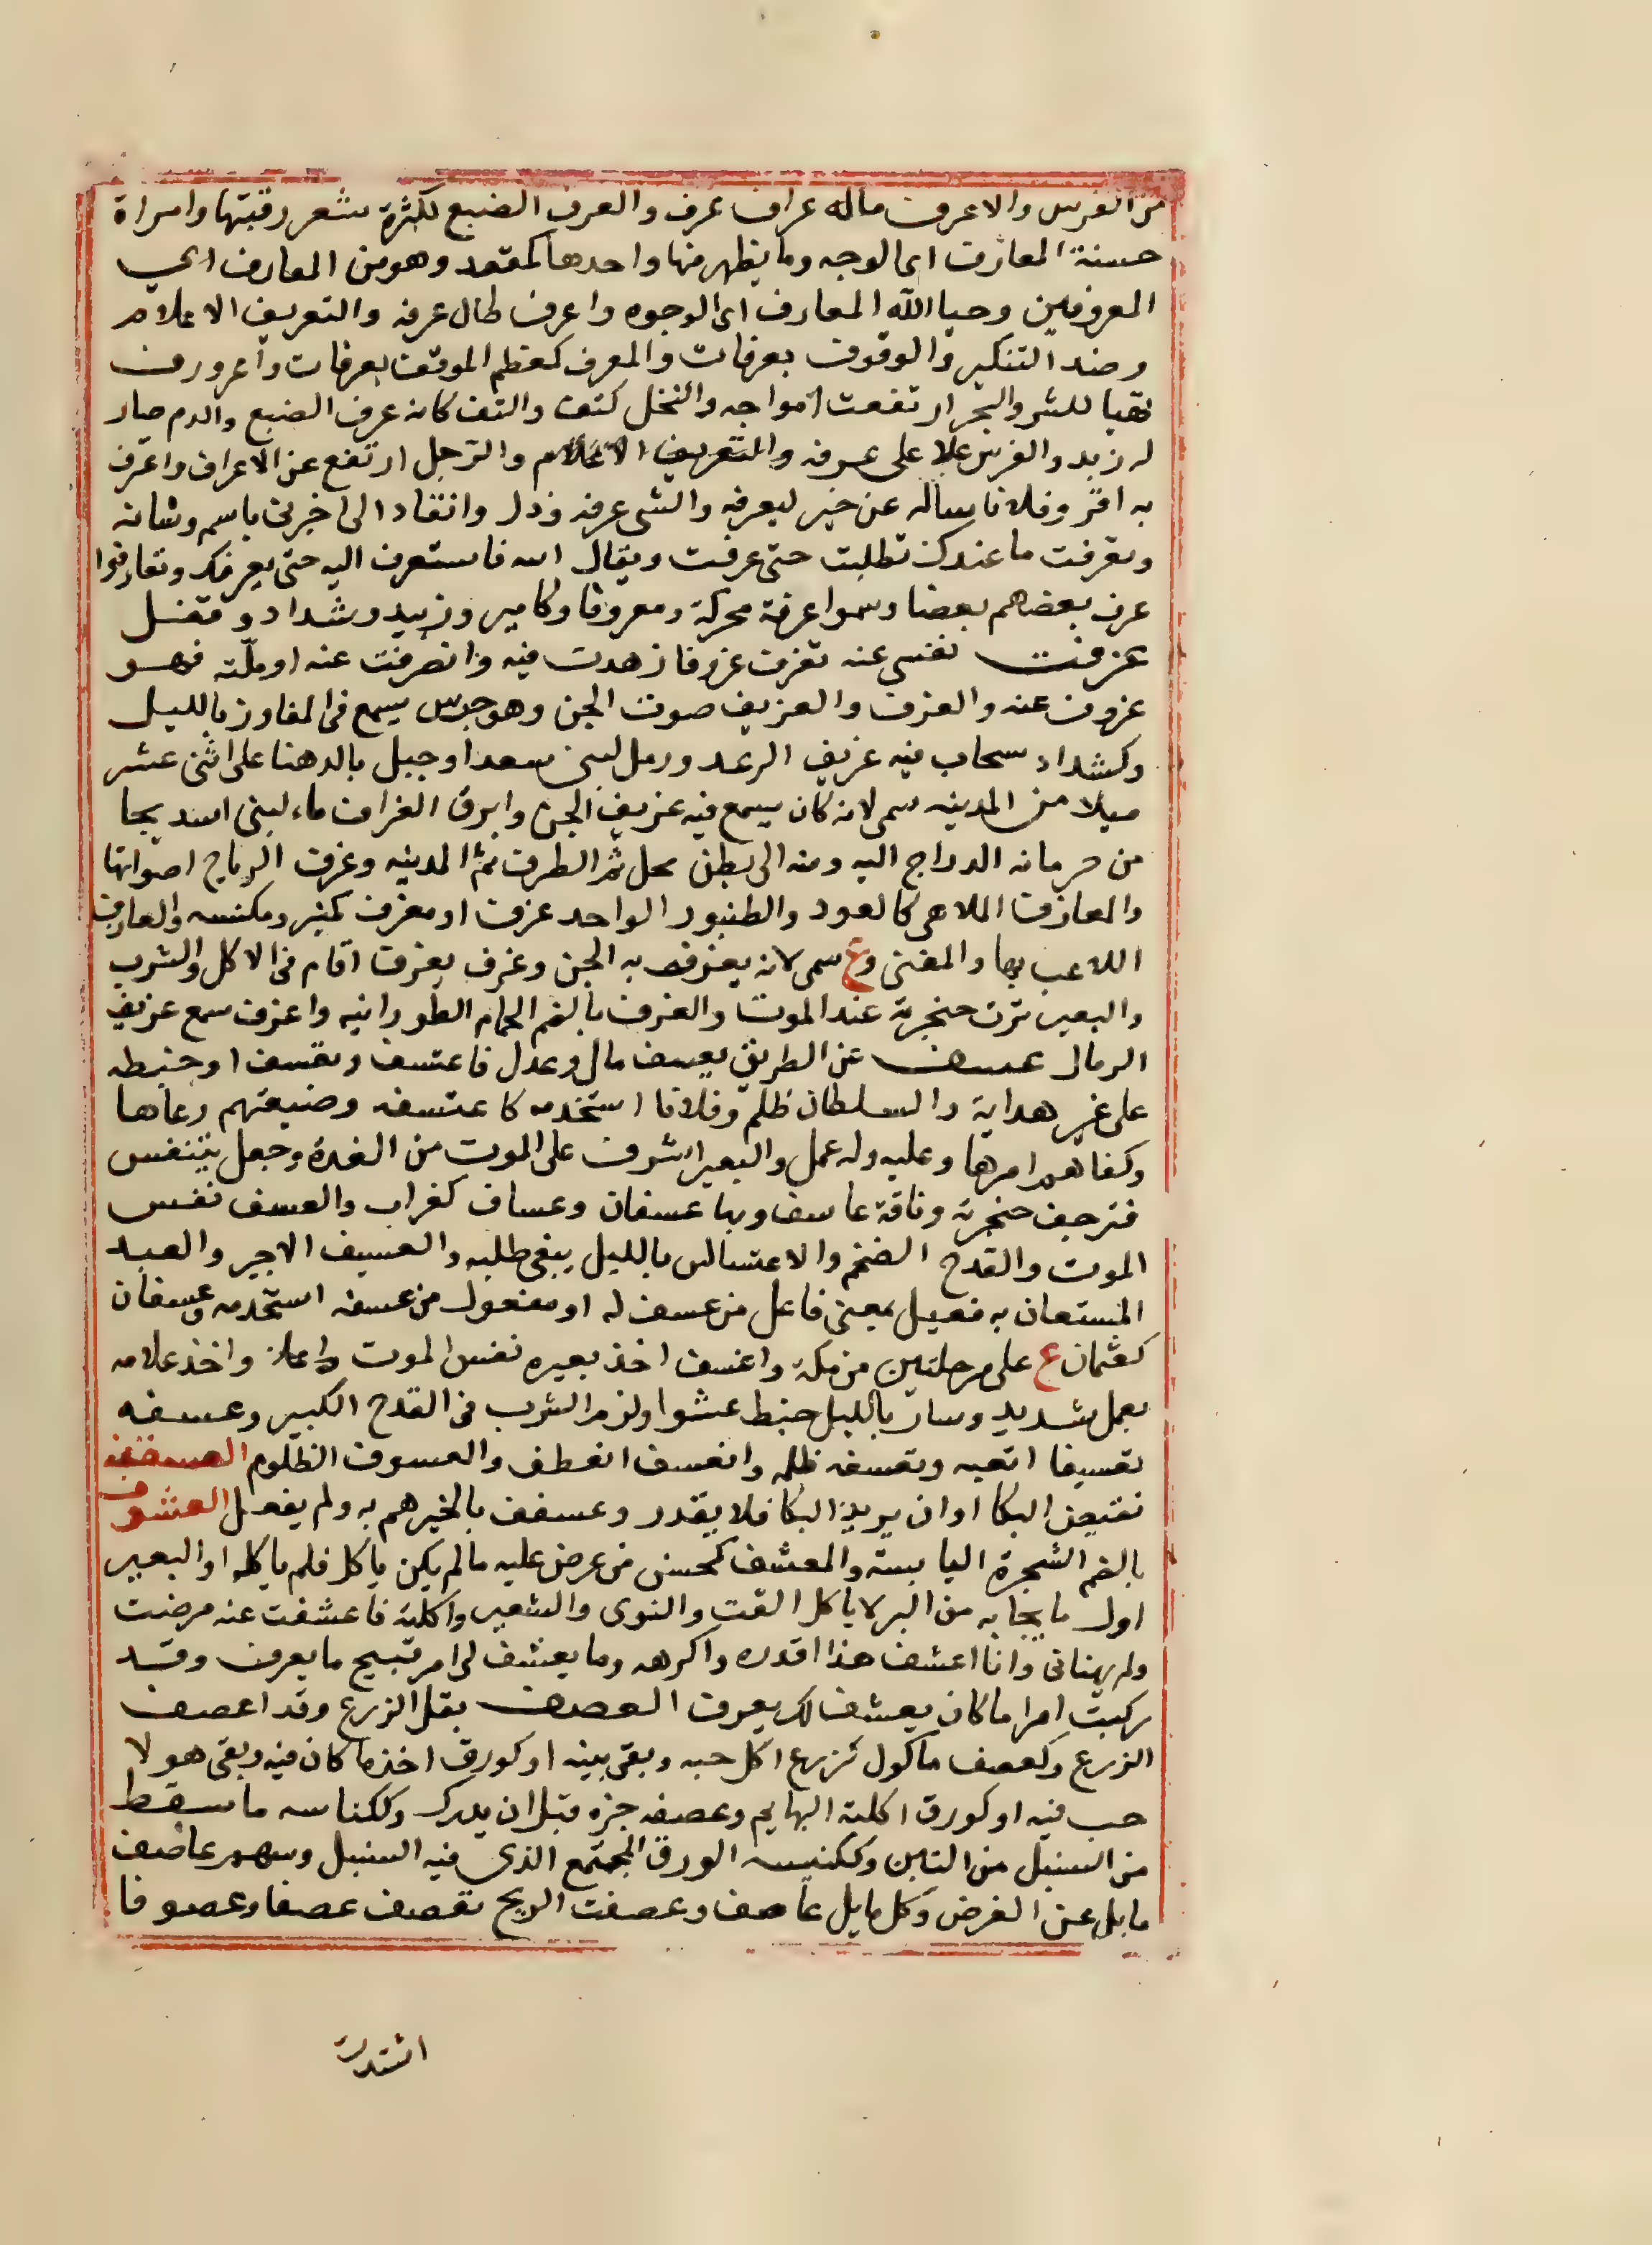 من الفرس والاعرف ماله عراف عرف والعرف الضبع لكثرة شعر رقبتها وامراة
حسنة المعارف اى الوجه وما يظهر منها واحدها كمقعد وهو من المعارف اي
المعروفين وحيا الله المعارف اى الوجوه واعرف طال عرفه والتعريف الاعلام
وضد التنكير والوقوف بعرفات والمعرف كمعظم الموقف بعرفات واعرورف
تهيا للشر والبحر ارتفعت امواجه والنخل كثف والتف كانه عرف الضبع والدم صار
له زبد والفرس علا على عرفه والتعريف الاعلام والرجل ارتفع عن الاعراف واعرف
به اقر وفلانا ساله عن خبر ليعرفه والشى عرفه وذل وانقاد الى اخبرنى باسم وشانه
وتعرفت ما عندك تطلبت حتى عرفت ويقال اىته فاستعرف اليه حتى يعرفك وتعارفوا
عرف بعضهم بعضا وسموا عرفة محركة ومعروفا وكامير وزبيد وشداد وقفل
عزفت نفسى عنه تعزف عزوفا زهدت فيه وانصرفت عنه او ملته فهو
عزوف عنه والعزف والعزيف صوت الجن وهو جرس يسمع فى المفاوز بالليل
وكشداد سحاب فيه عزيف الرعد ورمل لبنى سعد او جبل بالدهنا على اثنى عشر
ميلا من المدينه سمى لانه كان يسمع فيه عزيف الجن وابرق العزاف ماء لبنى اسد يجا
من حرمانه الدراج اليه ومنه الى بطن محل ثم الطرف ثم المدينه وعزف الرياح اصواتها
والمعازف الملاهى كالعود والطنبور الواحد عزف او معزف كمنبر ومكنسه والعازف
اللاعب بها والمغنى وع سمى لانه يعزف به الجن وعزف يعزف اقام فى الاكل والشرب
والبعير نزت حنجرته عند الموت والعزف بالضم الحمام الطورانيه واعزف سمع عزيف
الرمال عسف عن الطريق يعسف مال وعدل فاعتسف وتعسف او خبطه
على غير هداية والسلطان ظلم وفلانا استخدمه كاعتسفه وضيعتهم رعاها
وكفاهم امرها وعليه وله عمل والبعير اشرف على الموت من الغدة وجعل يتنفس
فترجف حنجرته وناقة عاسف وبها عسفان وعساف كغراب والعسف نفس
الموت والقدح الضخم والاعتساس بالليل يبغى طلبه والعسيف الاجير والعبد
المستعان به فعيل بمعنى فاعل من عسف له او مفعول من عسفه استخدمه وعسفان
كعثمان ع على مرحلتين من مكة واعسف اخذ بعيره نفس الموت واخذ غلامه
بعمل شديد وسار بالليل خبط عشوا ولزم الشرب فى القدح الكبير وعسفه
تعسيفا اتعبه وتعسفه ظلمه وانعسف انعطف والعسوف الظلوم العسقفه
نقيض البكا او ان يريد البكا فلا يقدر وعسقف بالخير هم به ولم يفعل العشوف
بالضم الشجرة اليابسة والمعشف كمحسن من عرض عليه ما لم يكن ياكل فلم ياكله او البعير
اول ما يجا به من البر لا ياكل القت والنوى والشعير واكلته فاعشفت عنه مرضت
ولم يهنانى وانا اعشف هذا اقذره واكرهه وما يعشف لى امر قبيح ما يعرف وقد
ركبت امرا ما كان يعشف لك يعرف العصف بقل الزرع وقد اعصف
الزرع وكعصف ماكول كزرع اكل حبه وبقى تبنه او كورق اخذ ما كان فيه وبقى هو لا
حب فيه او كورق اكلته البهايم وعصفه جزه قبل ان يدرك وككناسه ما سقط
من السنبل من التبن وككنيسه الورق المجتمع الذى فيه السنبل وسهم عاصف
مايل عن الغرض وكل مايل عاصف وعصفت الريح تعصف عصفا وعصوفا
اشتدت